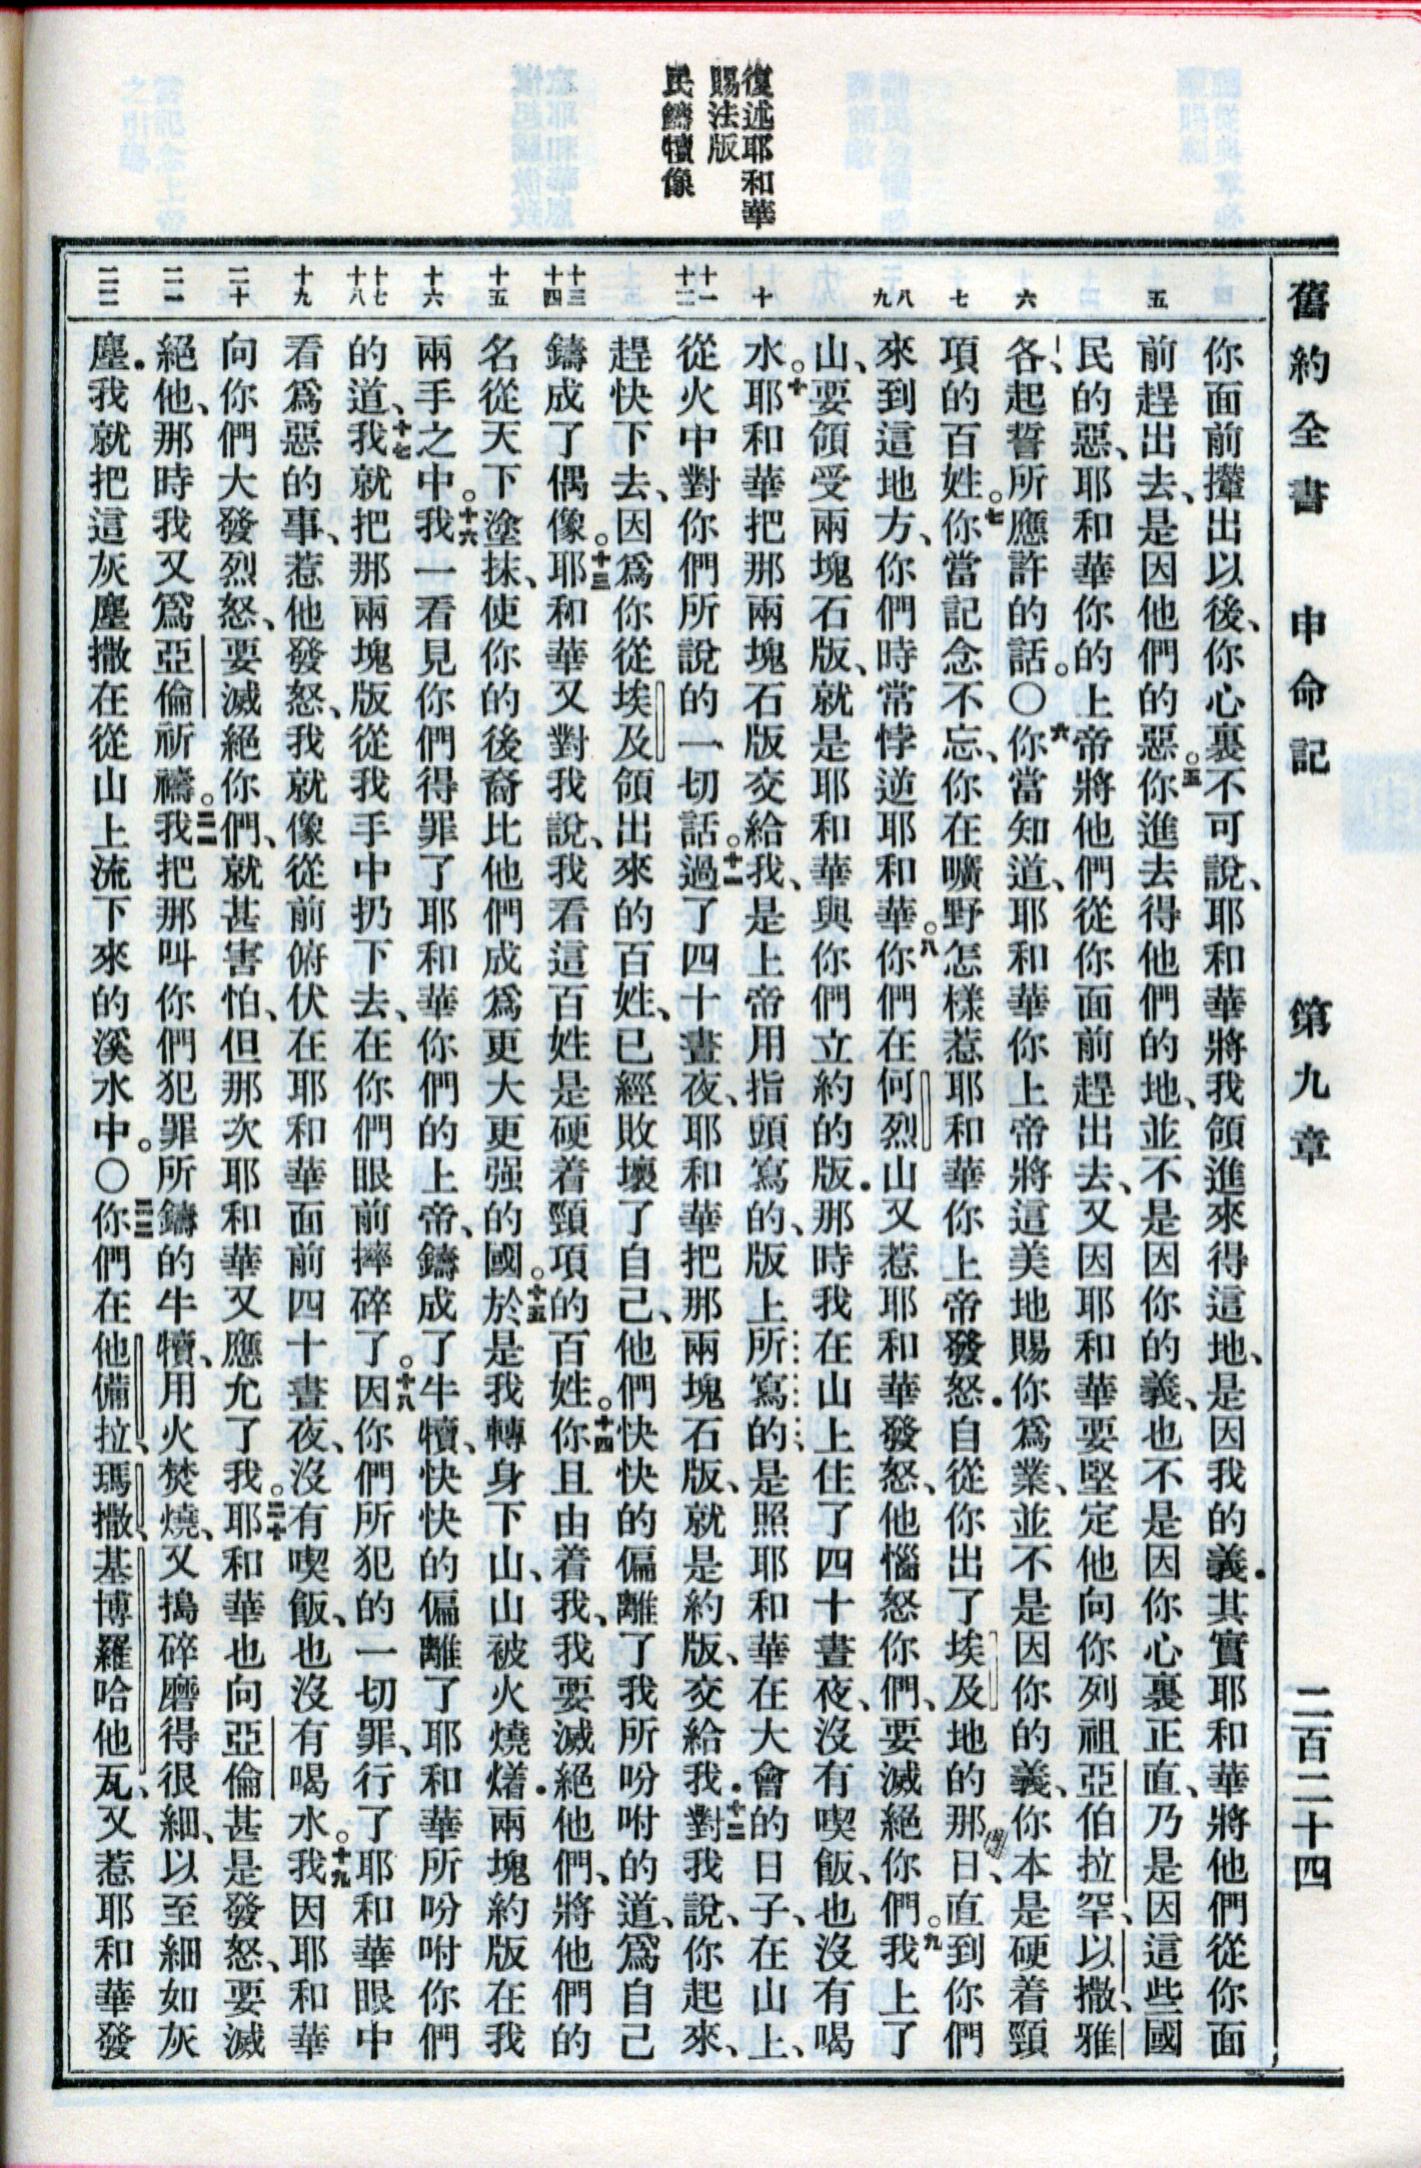 舊約全書 申命記 第九章 二百二十四
復述耶和華
賜法版
民鑄犢像
五
六
七
八
九
十
十一
十二
十三
十四
十五
十六
十七
十八
十九
二十
二一
二二
你面前攆出以後、你心裏不可說、耶和華將我領進來得這地、是因我的義．其實耶和華將他們從你面
前趕出去、是因他們的惡。五你進去得他們的地、並不是因你的義、也不是因你心裏正直、乃是因這些國
民的惡、耶和華你的上帝將他們從你面前趕出去、又因耶和華要堅定他向你列祖亞伯拉罕、以撒、雅
各、起誓所應許的話。〇六你當知道、耶和華你上帝將這美地賜你爲業、並不是因你的義、你本是硬着頸
項的百姓。七你當記念不忘、你在曠野怎樣惹耶和華你上帝發怒．自從你出了埃及地的那日、直到你們
來到這地方、你們時常悖逆耶和華。八你們在何烈山又惹耶和華發怒、他惱怒你們、要滅絕你們。九我上了
山、要領受兩塊石版、就是耶和華與你們立約的版．那時我在山上住了四十晝夜、沒有喫飯、也沒有喝
水。十耶和華把那兩塊石版交給我、是上帝用指頭寫的、版上所寫的是照耶和華在大會的日子、在山上、
從火中對你們所說的一切話。十一過了四十晝夜、耶和華把那兩塊石版、就是約版、交給我．十二對我說、你起來、
趕快下去、因爲你從埃及領出來的百姓、已經敗壞了自己、他們快快的偏離了我所吩咐的道、爲自己
鑄成了偶像。十三耶和華又對我說、我看這百姓是硬着頸項的百姓。十四你且由着我、我要滅絕他們、將他們的
名從天下塗抹、使你的後裔比他們成爲更大更强的國。十五於是我轉身下山、山被火燒㸌．兩塊約版在我
兩手之中。十六我一看見你們得罪了耶和華你們的上帝、鑄成了牛犢、快快的偏離了耶和華所吩咐你們
的道、十七我就把那兩塊版從我手中扔下去、在你們眼前摔碎了。十八因你們所犯的一切罪、行了耶和華眼中
看爲惡的事、惹他發怒、我就像從前俯伏在耶和華面前四十晝夜、沒有喫飯、也沒有喝水。十九我因耶和華
向你們大發烈怒、要滅絕你們、就甚害怕、但那次耶和華又應允了我。二十耶和華也向亞倫甚是發怒、要滅
絕他、那時我又爲亞倫祈禱。二一我把那叫你們犯罪所鑄的牛犢、用火焚燒、又搗碎磨得很細、以至細如灰
塵．我就把這灰塵撒在從山上流下來的溪水中。〇二二你們在他備拉、瑪撒、基博羅哈他瓦、又惹耶和華發